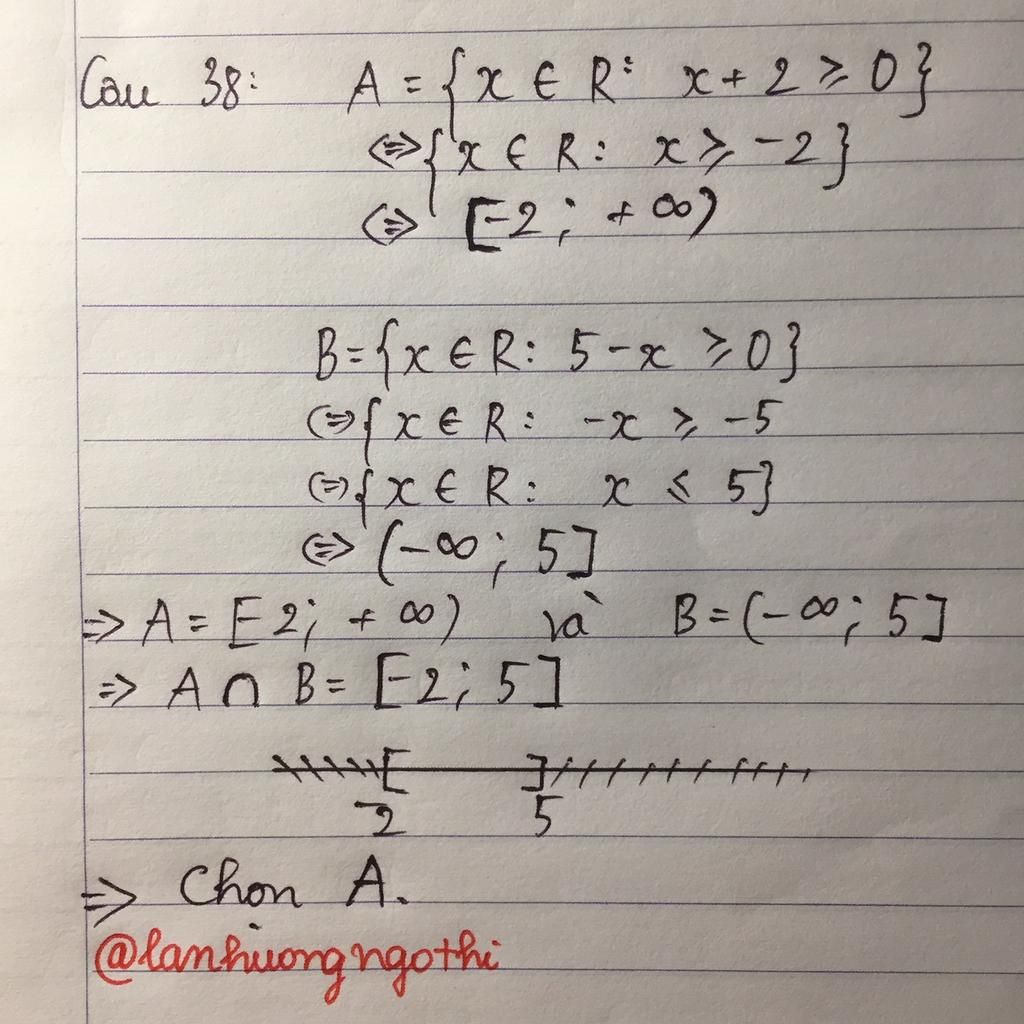 Câu 38: A = {x ∈ R: x + 2 ⩾ 0}
⇔ {x ∈ R: x ⩾ -2}
⇔ [-2; +∞)
B = {x ∈ R: 5 - x ⩾ 0}
⇔ {x ∈ R: -x ⩾ -5
⇔ {x ∈ R: x ⩽ 5}
⇔ (-∞; 5]
⇒ A = [-2; +∞) và B = (-∞; 5]
⇒ A ∩ B = [-2; 5]
-2 5
⇒ Chọn A.
@lanhuongngothi